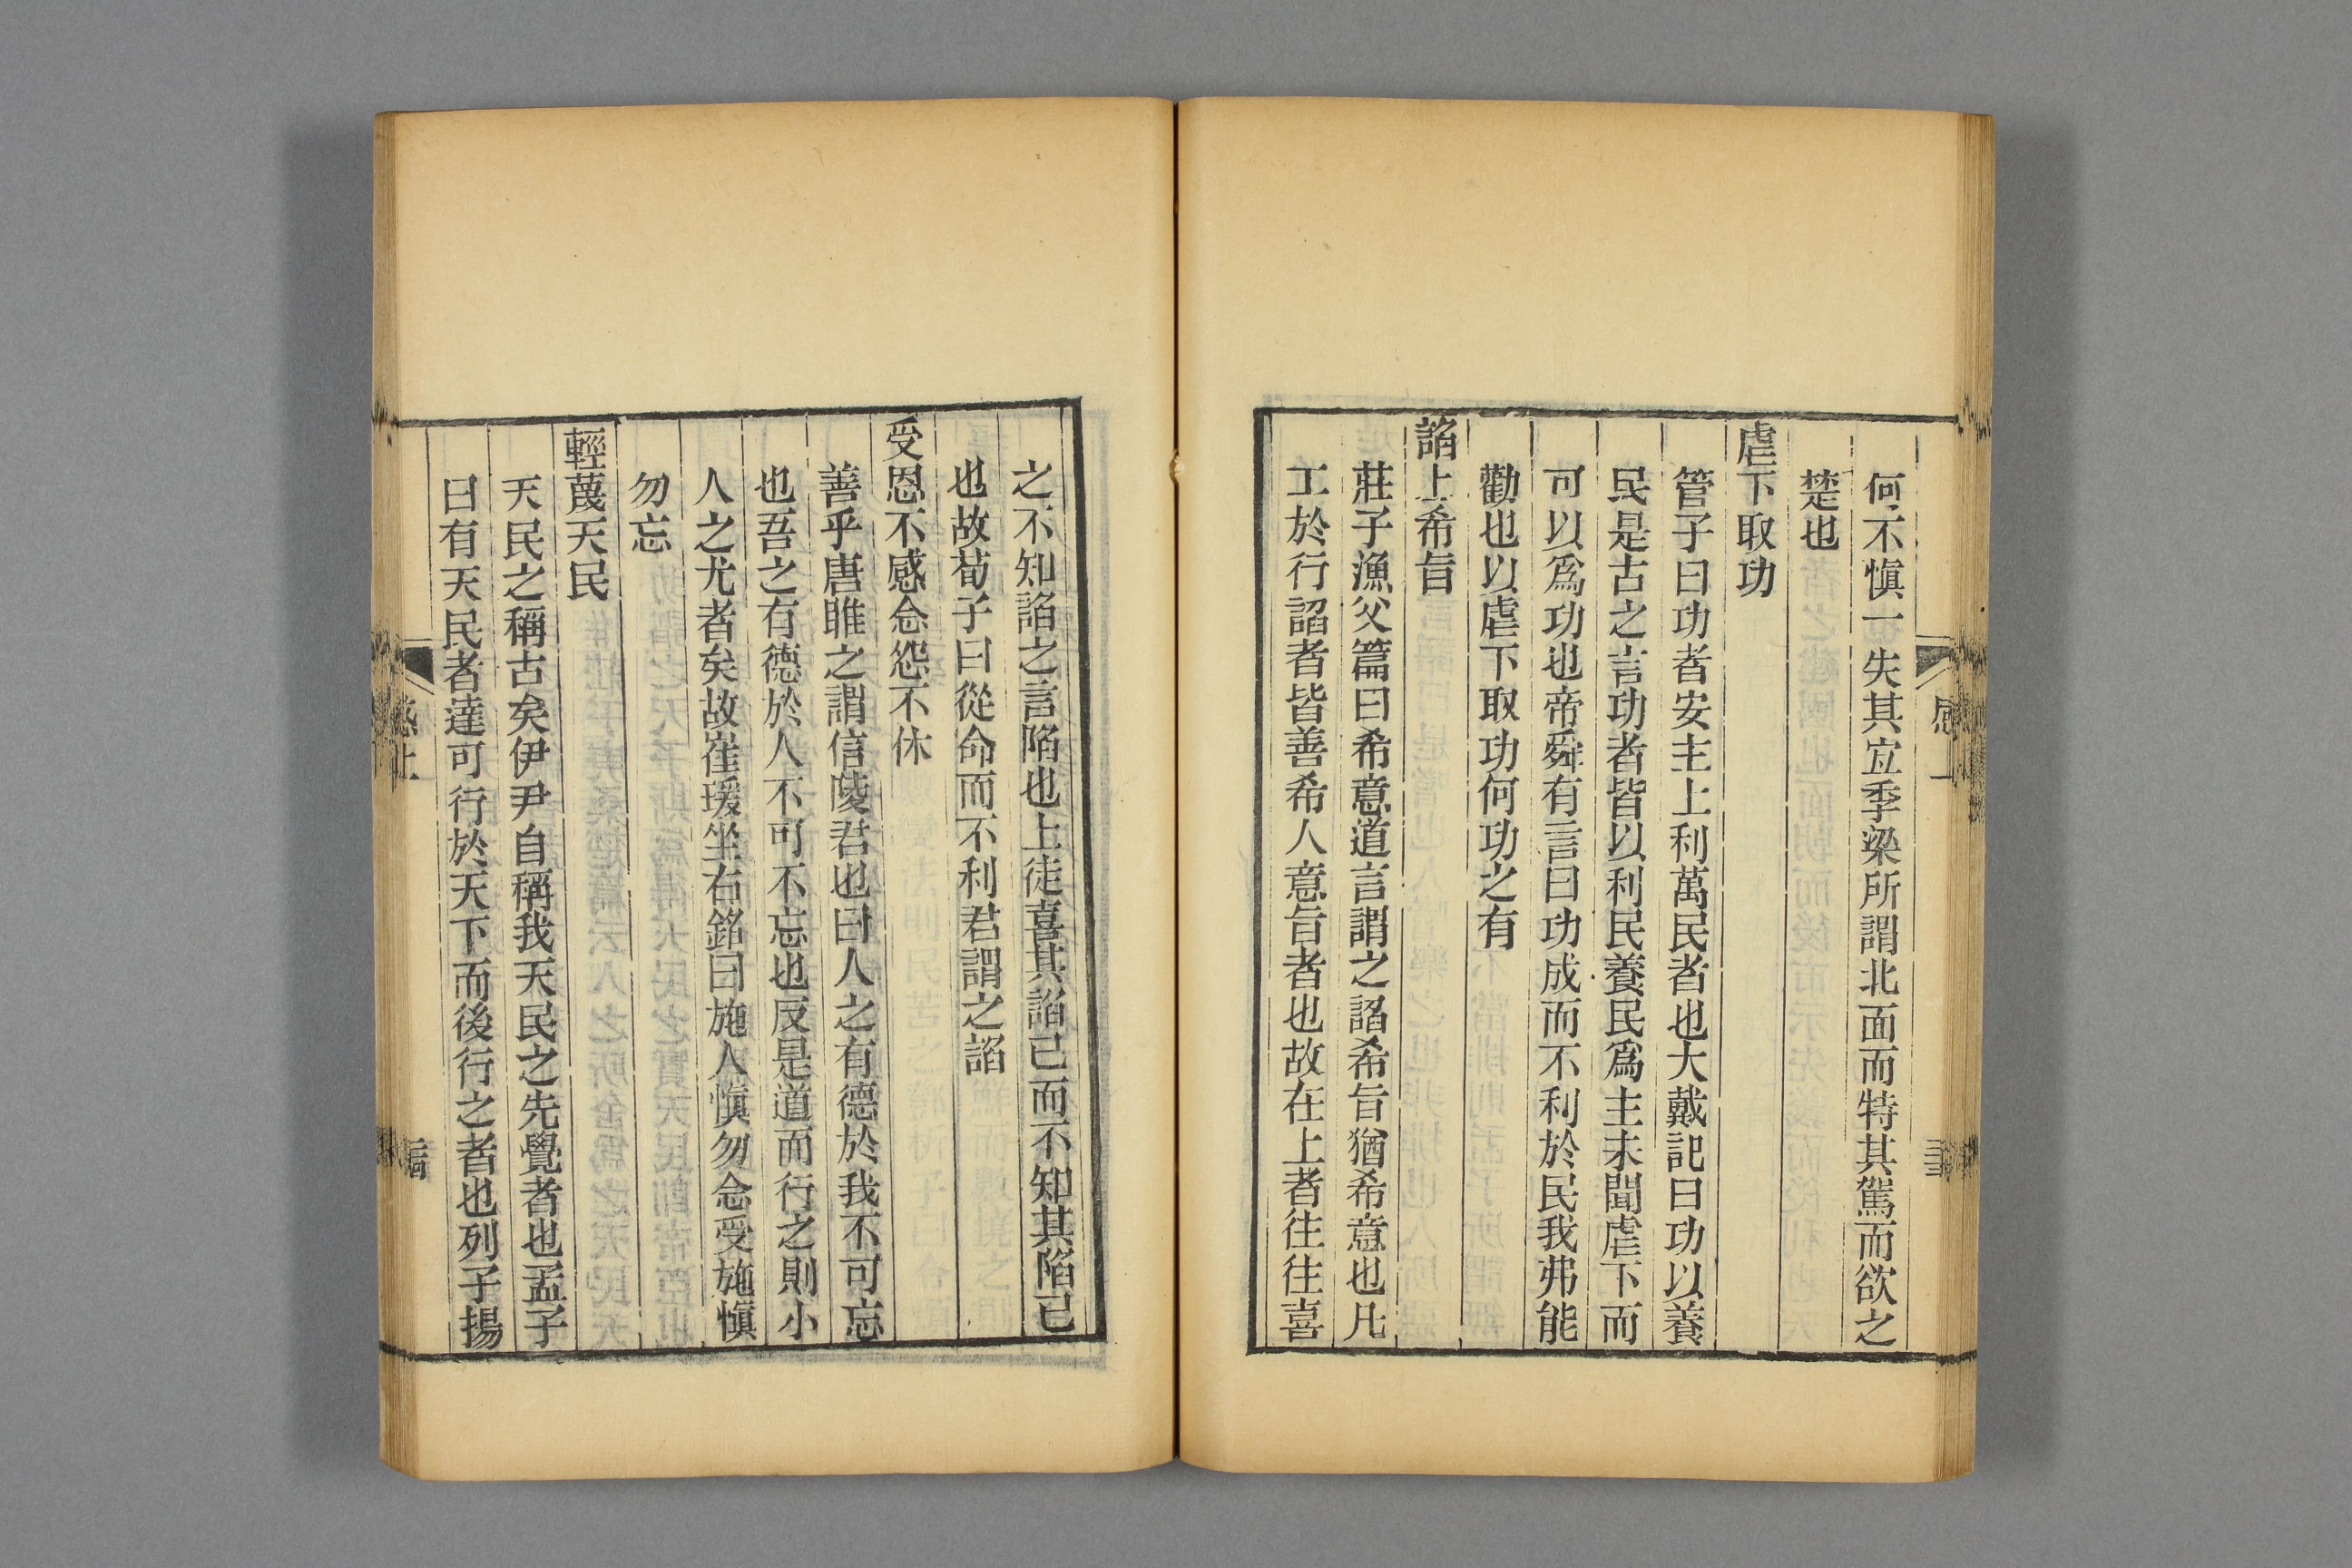 何不慎一失其宜季梁所謂北面而特其駕而欲之
楚也
虐下取功
管子曰功者安主上利萬民者也大戴記曰功以養
民是古之言功者皆以利民養民爲主未聞虐下而
可以爲功也帝舜有言曰功成而不利於民我弗能
勸也以虐下取功何功之有
諂上希旨
莊子漁父篇曰希意道言謂之諂希旨猶希意也凡
工於行諂者皆善希人意旨者也故在上者往往喜
之不知諂之言陷也上徒喜其諂已而不知其陷已
也故荀子曰從命而不利君謂之諂
受恩不感念怨不休
善乎唐雎之謂信陵君也曰人之有德於我不可忘
也吾之有德於人不可不忘也反是道而行之則小
人之尤者矣故崔瑗坐右銘曰施人慎勿念受施慎
勿忘
輕蔑天民
天民之稱古矣伊尹自稱我天民之先覺者也孟子
曰有天民者達可行於天下而後行之者也列子揚
感上